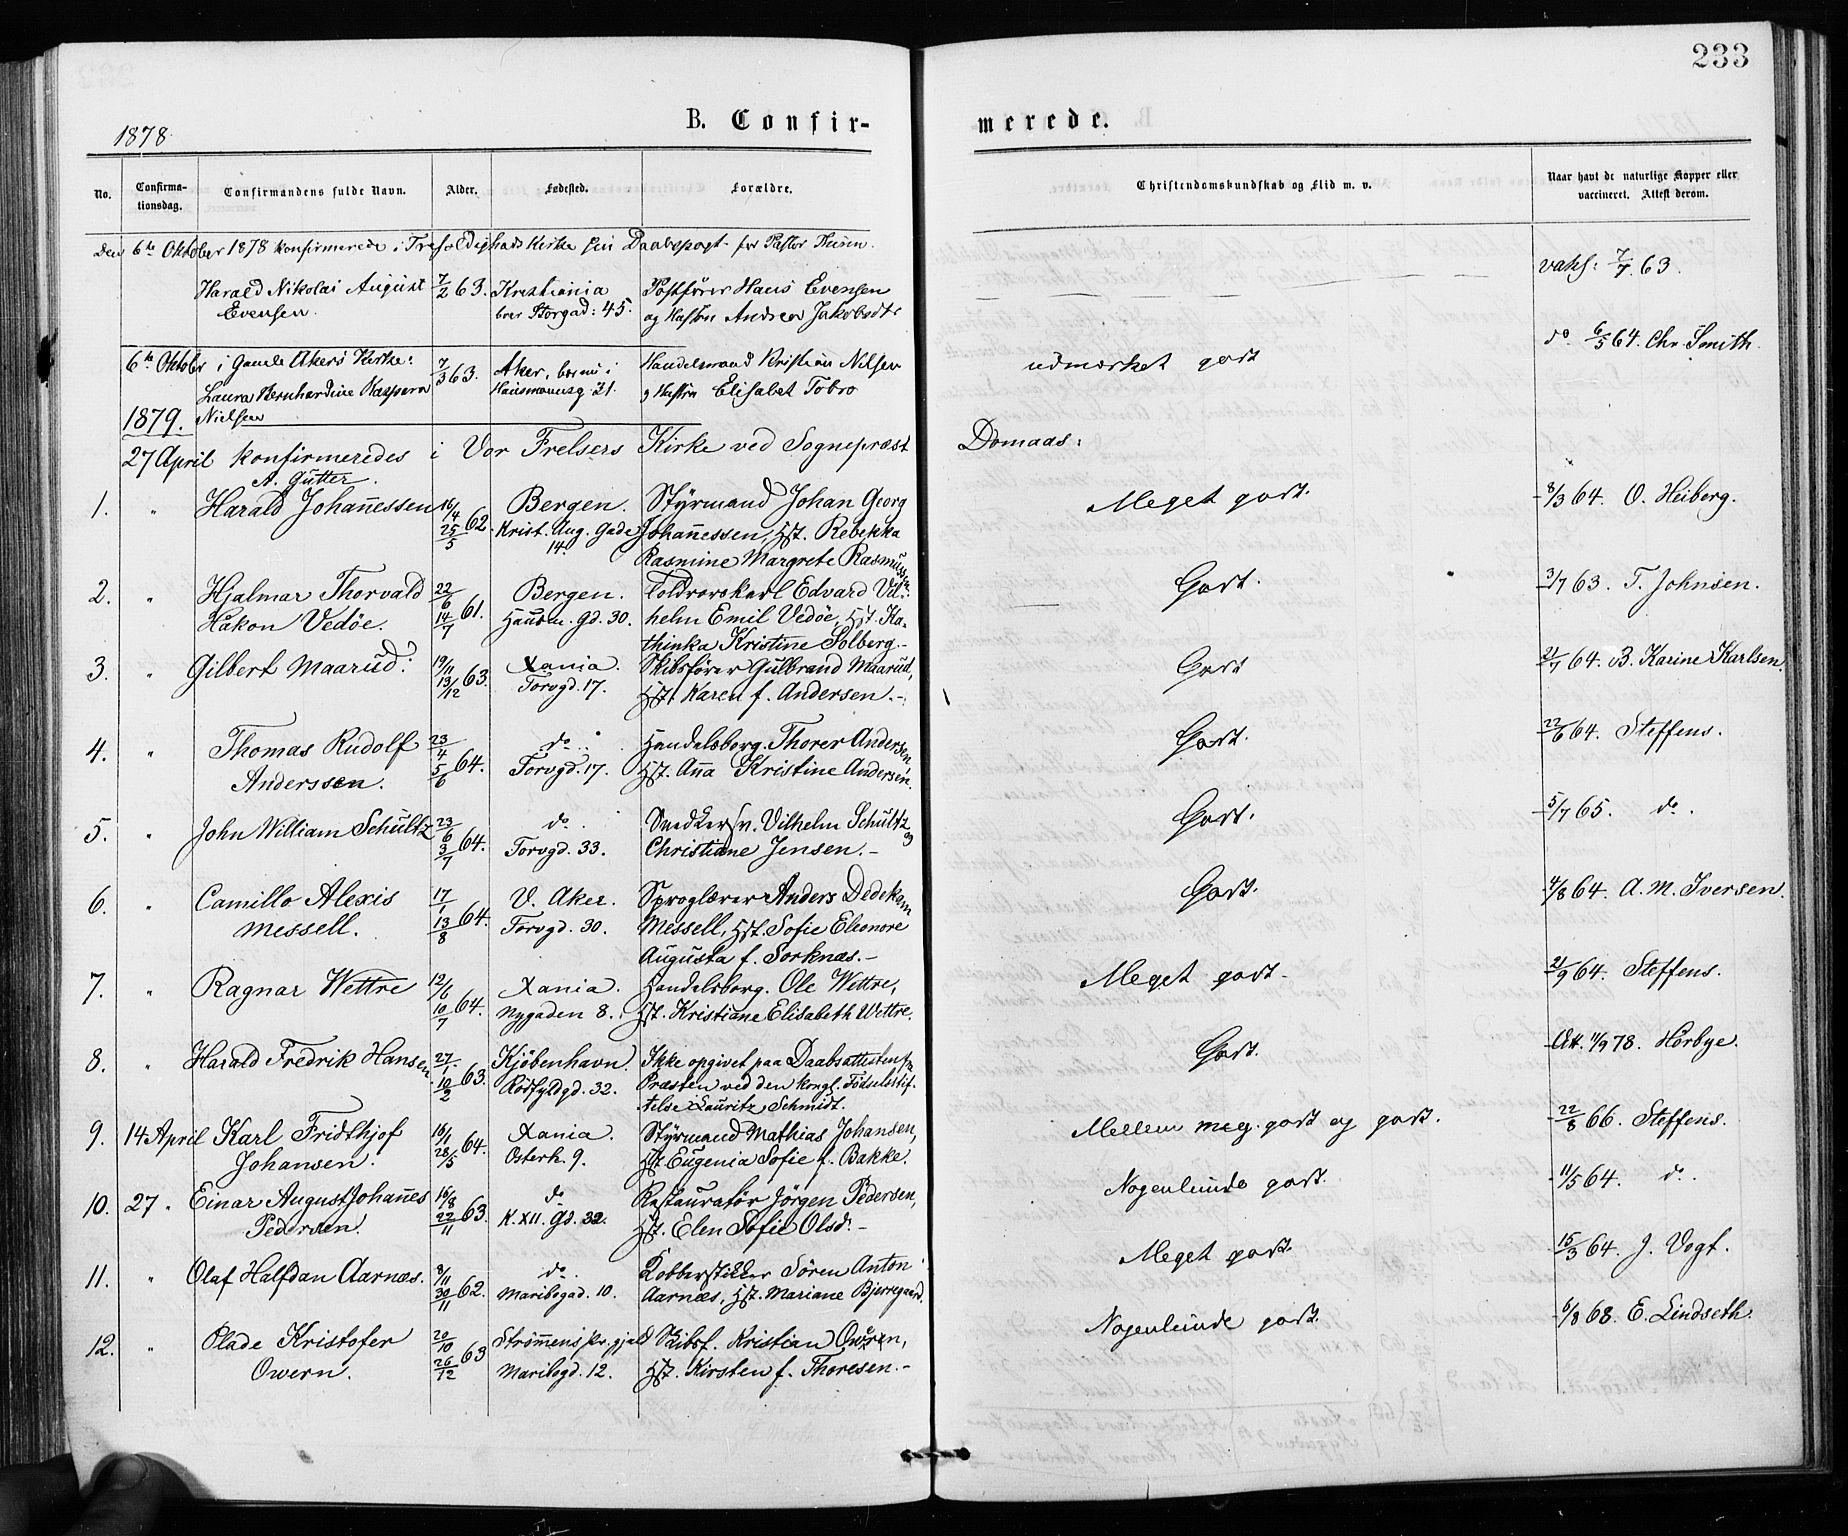 233
1878.
B. Confir-
merede.
No.
Confirma-
tionsdag.
Confirmandens fulde Navn.
Alder.
Fødested.
Forældre.
Christendomskundskab og Flid m. v.
Naar havt de naturlige Kopper eller
vaccineret. Attest derom.
Den 6te Oktober 1878 konfirmerede i Trefoldigheds Kirke sin Daabspagt for Pastor
Harald Nikolai August 7/2 63. Kristiania Postfører Hans Evensen vaks: 7/7 63.
Evensen. boer Storgad: 45. og Hustru Andrea Jakobsdtr
6te Oktober i Gamle Akers Kirke: 7/3 63. Aker, bor nu i Handelsmand Kristian Nilsen udmærket godt do 6/5 64. Chr. Smith.
Laura Bernhardine Kaspara Hausmannsg. 21. og Hustru Elisabet Tobro
1879. Nielsen
27 April konfirmeredes i Vor Frelsers Kirke ved Sognepræst Domaas:
A. Gutter.
1. " Harald Johannessen 16/4 Bergen. Styrmand Johan Georg Meget godt. 8/3 64. O. Heiberg.
25/5 62. Krist. Aug. Gade Johannessen, Hst. Rebekka
14. Rasmine Margrete Rasmussen
2. " Hjalmar Thorvald 22/6 Bergen. Toldrorskarl Edvard Vil- Godt. 3/7 63. T. Johnsen.
Hakon Vedöe. 14/7 61. Hausm. Gd. 30. helm Emil Vedöe, Hst. Ka-
thinka Kristine Solberg.-
3. " Gilbert Maarud. 19/11 Xania. Skibsfører Gulbrand Maarud, Godt 21/7 64. B. Karine Karlsen.
13/12 63. Torvgd. 17. Hst. Karen f. Andersen.-
4. " Thomas Rudolf 23/4 do. Handelsborg. Thorer Andersen, Godt. 22/6 64. Steffens.
Anderssen. 5/6 64. Torvgd. 17. Hst. Anna Kristine Andersen.
5. " John William Schultz 23/6 do. Snedkersv. Vilhelm Schultz og Godt. 5/7 65. do.
3/7 64. Torvgd. 33. Christiane Jensen.-
6. " Camillo Alexis 17/1 V. Aker. Sproglærer Anders Dedekam Godt. 4/8 64. A. M. Iversen.
Messell. 13/8 64. Torvgd. 30. Messell, Hst. Sofie Eleonore
Augusta f. Sorknæs.-
7. " Ragnar Wettre 12/6 Xania. Handelsborg. Ole Wettre, Meget godt. 21/9 64. Steffens.
10/7 64. Nygaden 8. Hst. Kristiane Elisabeth Wettre.
8. " Harald Fredrik Hansen 27/1 Kjöbenhavn. Ikke opgivet paa Daabsattesten fra Godt. Att. 11/9 78. Hörbye.
10/2 63. Rödfyldgd. 32. Præsten ved den kongl. Födselsstif-
telse Lauritz Schmidt.
9. 14 April Karl Fridthjof 16/1 Xania. Styrmand Mathias Johansen, Mellem meg. godt og godt. 22/8 66. Steffens.
Johansen. 28/5 64. Osterh. 9. Hst. Eugenia Sofie f. Bakke.
10. 27 " Einar August Johannes 16/8 do Restauratör Jörgen Pedersen, Nogenlunde godt. 11/5 64. do.
Pedersen. 22/11 63. K. XII. Gd. 32. Hst. Elen Sofie Olsd.-
11. " Olaf Halfdan Aarnæs. 8/11 do Kobberstikker Sören Anton Meget godt. 15/3 64. J. Vogt.
30/11 62. Maribogad. 10. Aarnæs, Hst. Mariane Bjerregaard.
12. " Plade Kristofer 20/10 Strömmens Pr. gjeld Skibsf. Kristian Oweren, Nogenlunde godt. 6/8 68. E. Lindseth.
Owern. 26/12 63 Maribogd. 12. Hst. Kirsten f. Thoresen.-